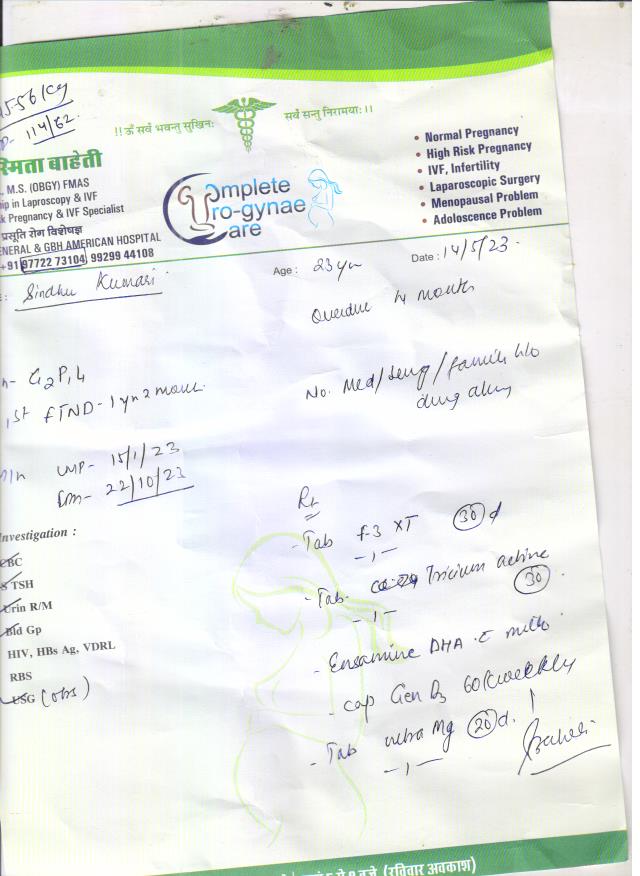 55-56/Kg
114/62
!!ॐ सर्वे भवन्तु सुखिनः
सर्वे सन्तु निरामयाः।।
स्मिता बाहेती
. M.S. (OBGY) FMAS
ip in Laproscopy & IVF
k Pregnancy & IVF Specialist
प्रसूति रोग विशेषज्ञ
ENERAL & GBH AMERICAN HOSPITAL
+91 97722 73104, 99299 44108
Complete
Uro-gynae
Care
• Normal Pregnancy
• High Risk Pregnancy
• IVF, Infertility
• Laparoscopic Surgery
• Menopausal Problem
• Adoloscence Problem
: Sindhu Kumari
Age : 23 yr
Date : 14/5/23
Overdue 4 months
G2P1L1
1st FTND - 1 yr 2 mont
No. Med/Surg/family h/o
drug allergy
LMP- 15/1/23
EDD- 22/10/23
Rx
- Tab F-3 XT 30 d
- 1 -
- Tab. Tricium active
30
- 1 -
- Ensamine DHA c milk
- Cap Gen D3 60K weekly
- Tab ultra Mg 20 d.
- 1 -
nvestigation :
CBC
S TSH
Urin R/M
Bld Gp
HIV, HBs Ag, VDRL
RBS
USG (obs)
बजे (रविवार अवकाश)